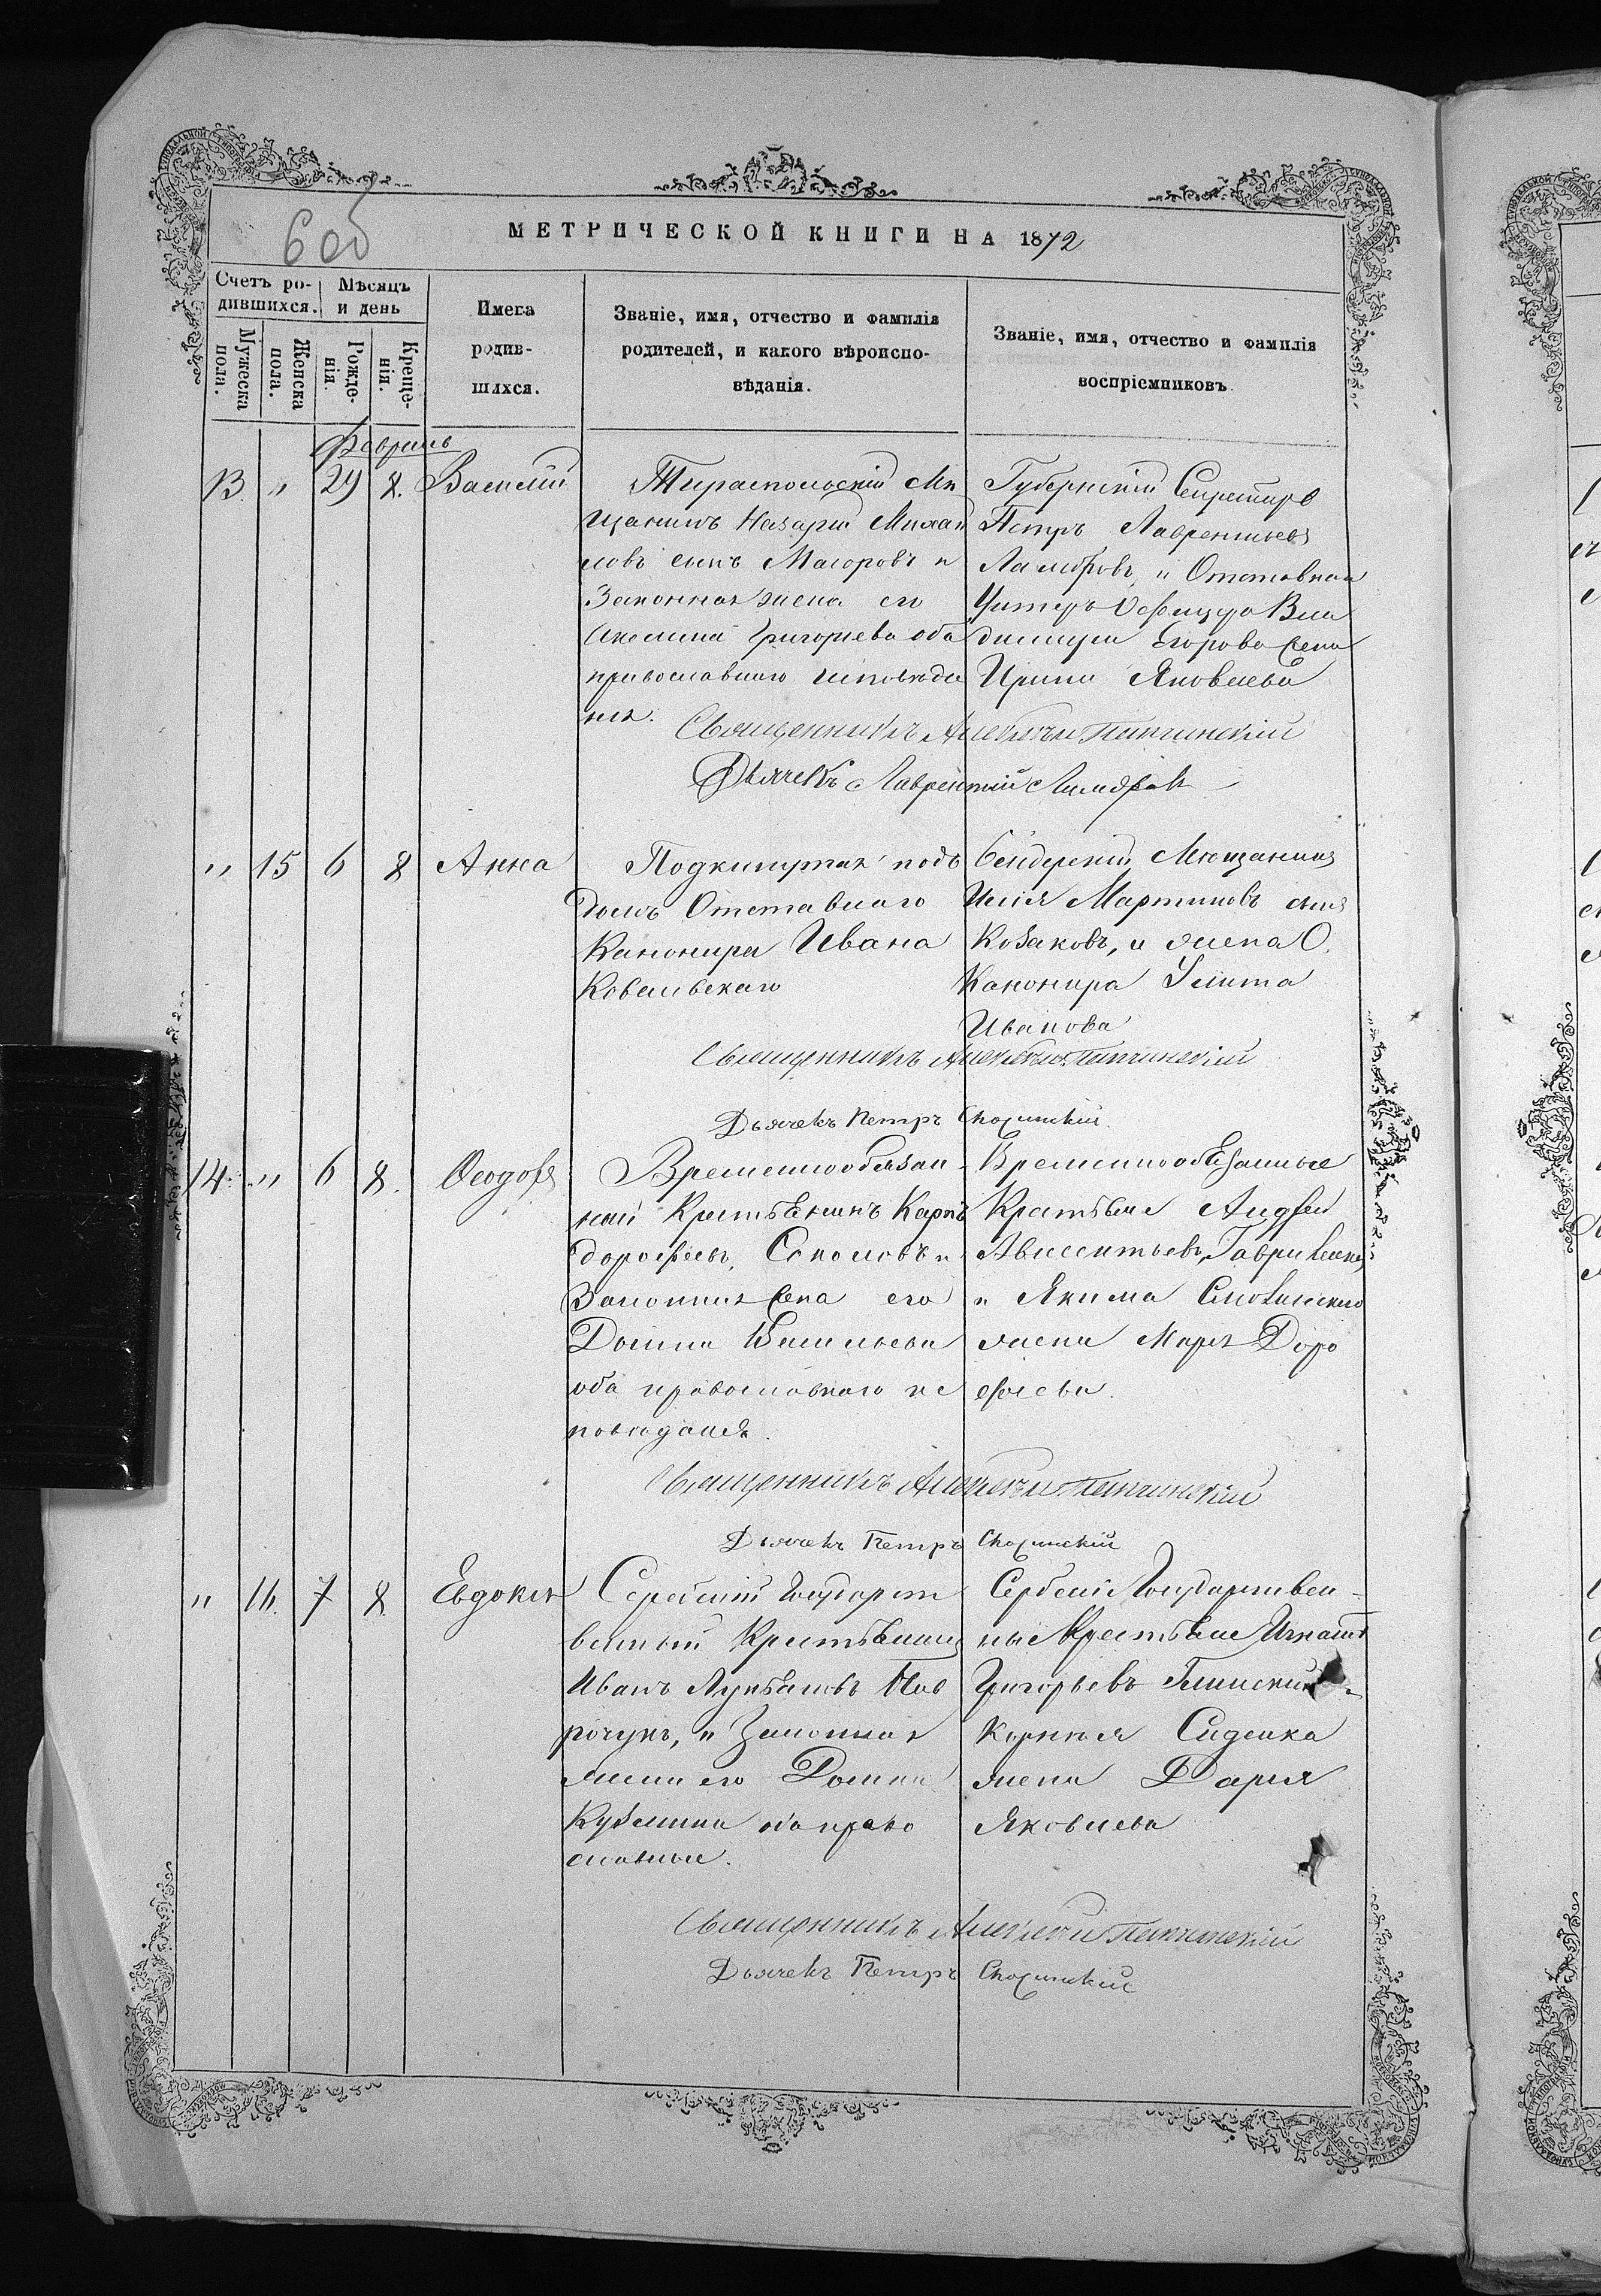 6 об
МЕТРИЧЕСКОЙ КНИГИ НА 1872
Счетъ ро-
дившихся.
Мѣсяцъ
и день
Мужеска
пола.
Женска
пола.
Рожде-
нія.
Креще-
нія.
Имена
родив-
шихся.
Званіе, имя, отчество и фамилія
родителей, и какого вѣроиспо-
вѣданія.
Званіе, имя, отчество и фамилія
воспріемниковъ
Февраль
13. " 29 8. Василій
Тираспольскій Мѣ
щанинъ Назарій Михаи
ловъ сынъ Маіоровъ и
Законная жена его
Акелина Григорьева оба
православнаго исповѣда
нія.
Губернскій Секретарь
Петръ Лаврентьевъ
и Отставнаго
Унтеръ Офицера Вла
димира Егорова жена
Ирина Яковлева
Священникъ Алексѣй
Дьячекъ Лаврентій
" 15 6 8 Анна
Подкинутая подъ
домъ Отставнаго
Канонира Ивана
Ковальскаго
Бендерскій Мѣщанинъ
Илія Мартиновъ сынъ
Козаковъ, и жена О.
Канонира Улита
Иванова
Священникъ Алексѣй
Дьячекъ Петръ
14. " 6 8. Ѳеодоръ
Временнообязан-
ный Крестьянинъ Карпъ
дорофѣевъ, Соколовъ и
Законная жена его
Домна Васильева
оба православнаго ис
повѣданія.
Временнообязанные
Крестьяне Андрей
Авксентьевъ,
и Якима
жена Марія Доро
фѣева.
Священникъ Алексѣй
Дьячекъ Петръ
" 16. 7 8. Евдокія
Сербскій Государст
венный Крестьянинъ
Иванъ Лукьяновъ
и Законная
жена его Домна
Кузьмина оба право
славные.
Сербскіе Государствен-
ные Крестьяне Игнатъ
Григорьевъ
Корнилія Сиденка
жена Дарія
Яковлева
Священникъ Алексѣй
Дьячекъ Петръ